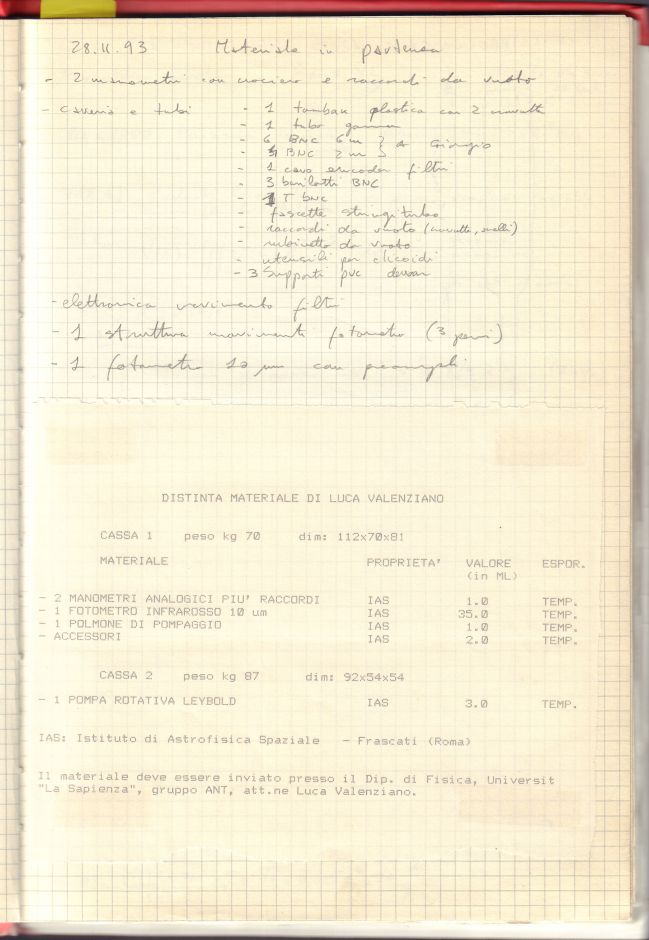 28.11.93 Materiale in partenza
- 2 manometri con crociera e raccordi da vuoto
- caveria e tubi - 1 tombak plastica con 2
- 1 tubo gomma
- 6 BNC 6m } da Giorgio
- 4 BNC 2m }
- 1 cavo encoder filtri
- 3 barilotti BNC
- 1 T bnc
- fascette stringitubo
- raccordi da vuoto
- rubinetto da vuoto
- utensili per elicoidi
- 3 Supporti pvc dewar
- elettronica movimento filtri
- 1 struttura movimenti fotometro (3
- 1 fotometro 10 µm con preampli
DISTINTA MATERIALE DI LUCA VALENZIANO
CASSA 1 peso kg 70 dim: 112x70x81
MATERIALE PROPRIETA' VALORE ESPOR.
(in ML)
- 2 MANOMETRI ANALOGICI PIU' RACCORDI IAS 1.0 TEMP.
- 1 FOTOMETRO INFRAROSSO 10 um IAS 35.0 TEMP.
- 1 POLMONE DI POMPAGGIO IAS 1.0 TEMP.
- ACCESSORI IAS 2.0 TEMP.
CASSA 2 peso kg 87 dim: 92x54x54
- 1 POMPA ROTATIVA LEYBOLD IAS 3.0 TEMP.
IAS: Istituto di Astrofisica Spaziale - Frascati (Roma)
Il materiale deve essere inviato presso il Dip. di Fisica, Universit
"La Sapienza", gruppo ANT, att.ne Luca Valenziano.